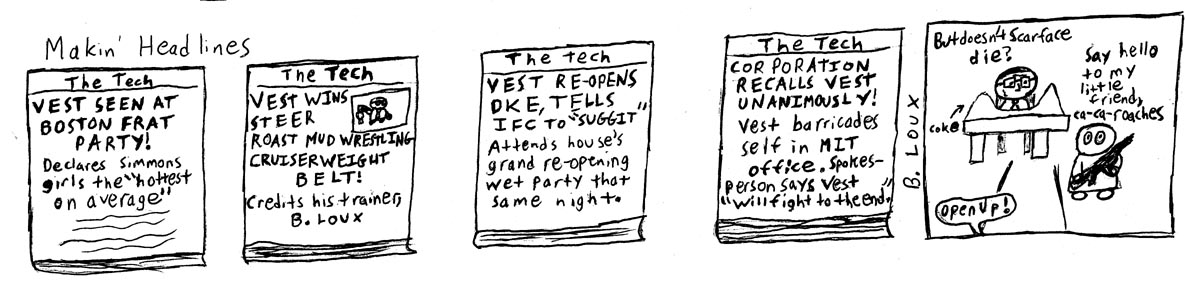 Makin' Headlines
The Tech
VEST SEEN AT
BOSTON FRAT
PARTY!
Declares Simmons
girls the "hottest
on average."
The Tech
VEST WINS
STEER
ROAST MUD WRESTLING
CRUISERWEIGHT
BELT!
Credits his trainer,
B. LOUX
The Tech
VEST RE-OPENS
DKE, TELLS
IFC TO "SUGGIT"
Attends house's
grand re-opening
wet party that
same night.
The Tech
CORPORATION
RECALLS VEST
UNANIMOUSLY!
Vest barricades
self in MIT
office. Spokes-
person says Vest
"will fight to the end."
B. LOUX
But doesn't Scarface
die?
Say hello
to my
little
friend,
ca-ca-roaches
coke
Open up!